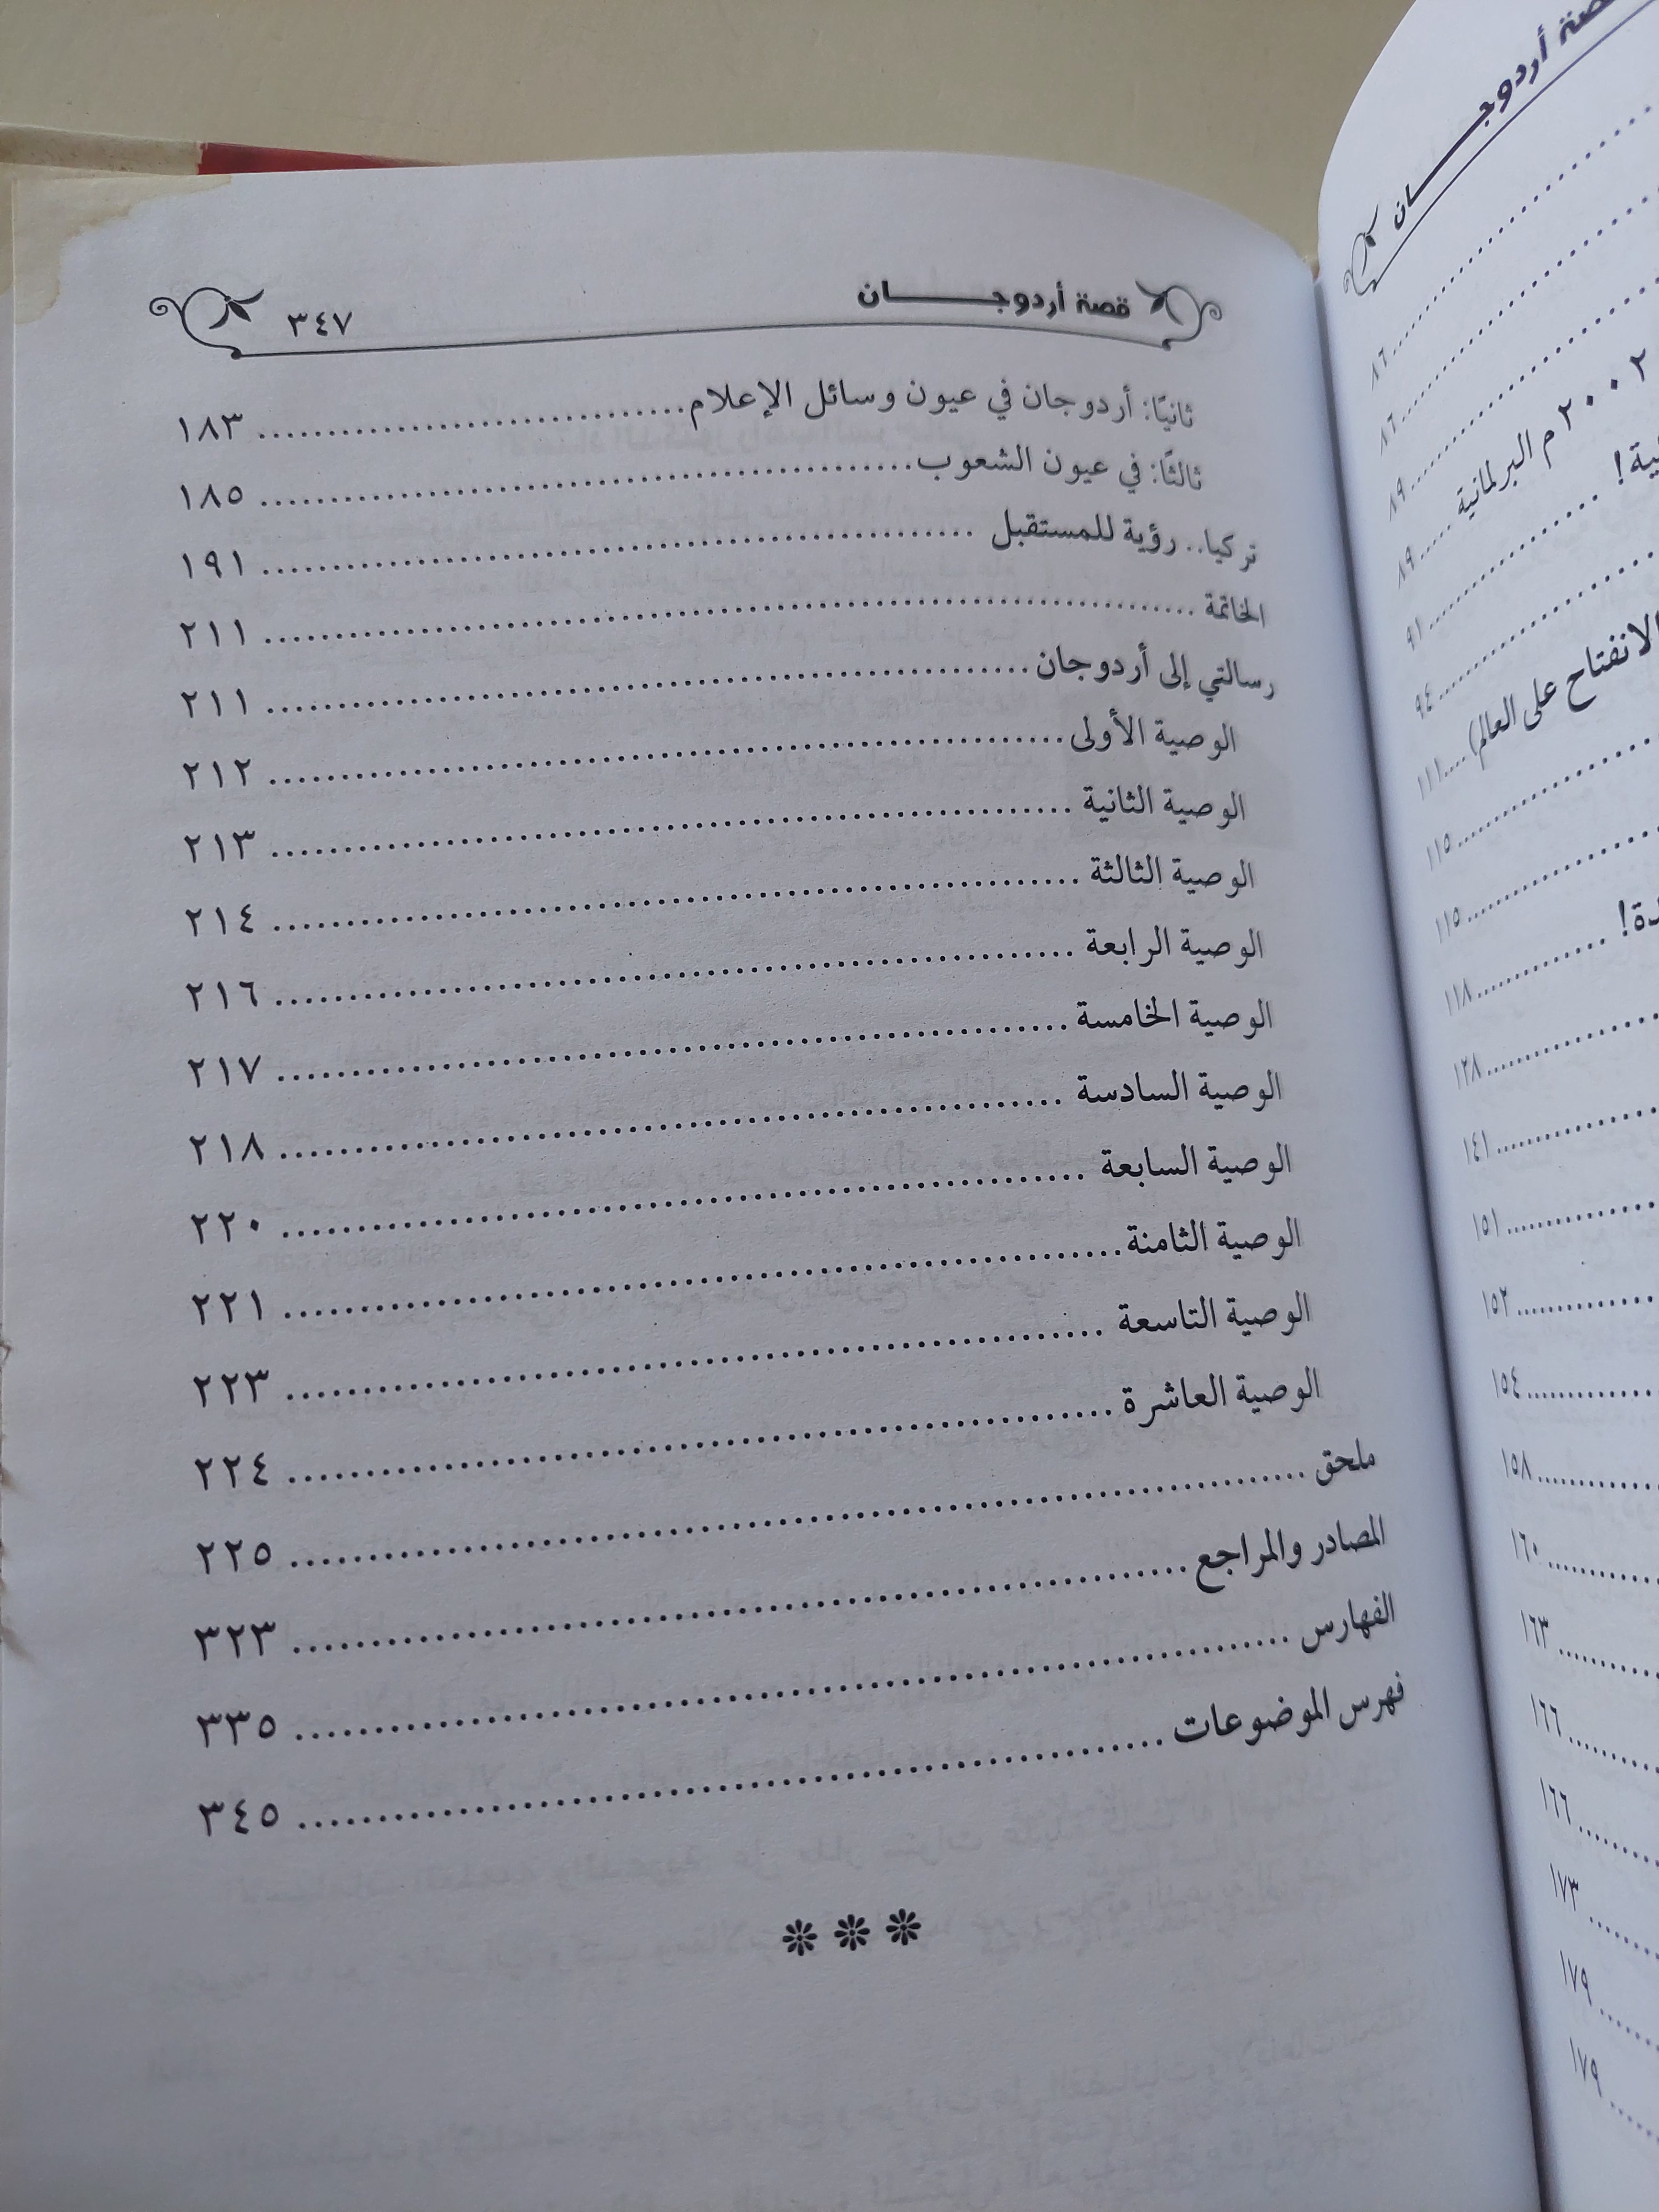 قصة أردوجـــــــان
٨٦
٨٦
٨٩
٢٠٠٢م البرلمانية ..... ٨٩
ية! ..... ٩١
٩٤
الانفتاح على العالم) .... ١١١
١١٥
١١٥
دة! ..... ١١٨
١٢٨
١٤١
١٥١
١٥٢
١٥٤
١٥٨
١٦٠
١٦٣
١٦٦
١٦٦
١٧٣
١٧٩
١٧٩
قصة أردوجـــــــان ٣٤٧
ثانيًا: أردوجان في عيون وسائل الإعلام ..... ١٨٣
ثالثًا: في عيون الشعوب ..... ١٨٥
تركيا.. رؤية للمستقبل ..... ١٩١
الخاتمة ..... ٢١١
رسالتي إلى أردوجان ..... ٢١١
الوصية الأولى ..... ٢١٢
الوصية الثانية ..... ٢١٣
الوصية الثالثة ..... ٢١٤
الوصية الرابعة ..... ٢١٦
الوصية الخامسة ..... ٢١٧
الوصية السادسة ..... ٢١٨
الوصية السابعة ..... ٢٢٠
الوصية الثامنة ..... ٢٢١
الوصية التاسعة ..... ٢٢٣
الوصية العاشرة ..... ٢٢٤
ملحق ..... ٢٢٥
المصادر والمراجع ..... ٣٢٣
الفهارس ..... ٣٣٥
فهرس الموضوعات ..... ٣٤٥